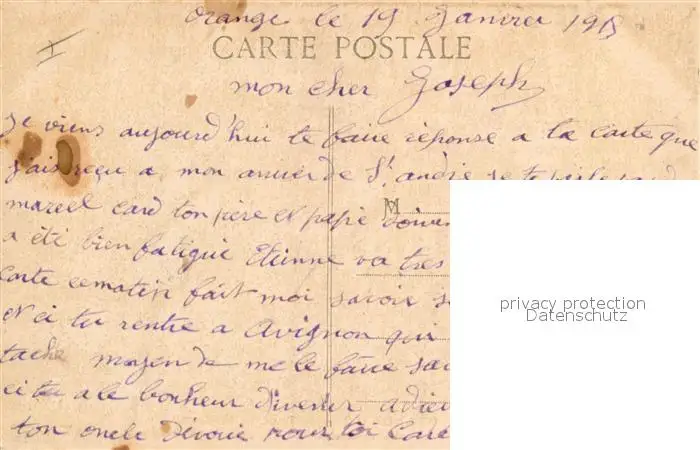 Orange le 19 Janvier 1915
CARTE POSTALE
mon cher Joseph
Je viens aujourd'hui te faire réponse a ta carte que
j'ais reçu a mon arrivér de St andré je te
marcel card ton père et papie
M
a été bien fatigué Etienne va tres
carte cematin fait moi savoir
et ci tu rentre a Avignon qui
tache moyen de me le faire
ci tu a le bonheur d'ivenir adieu
ton oncle dévoué pour toi
privacy protection
Datenschutz